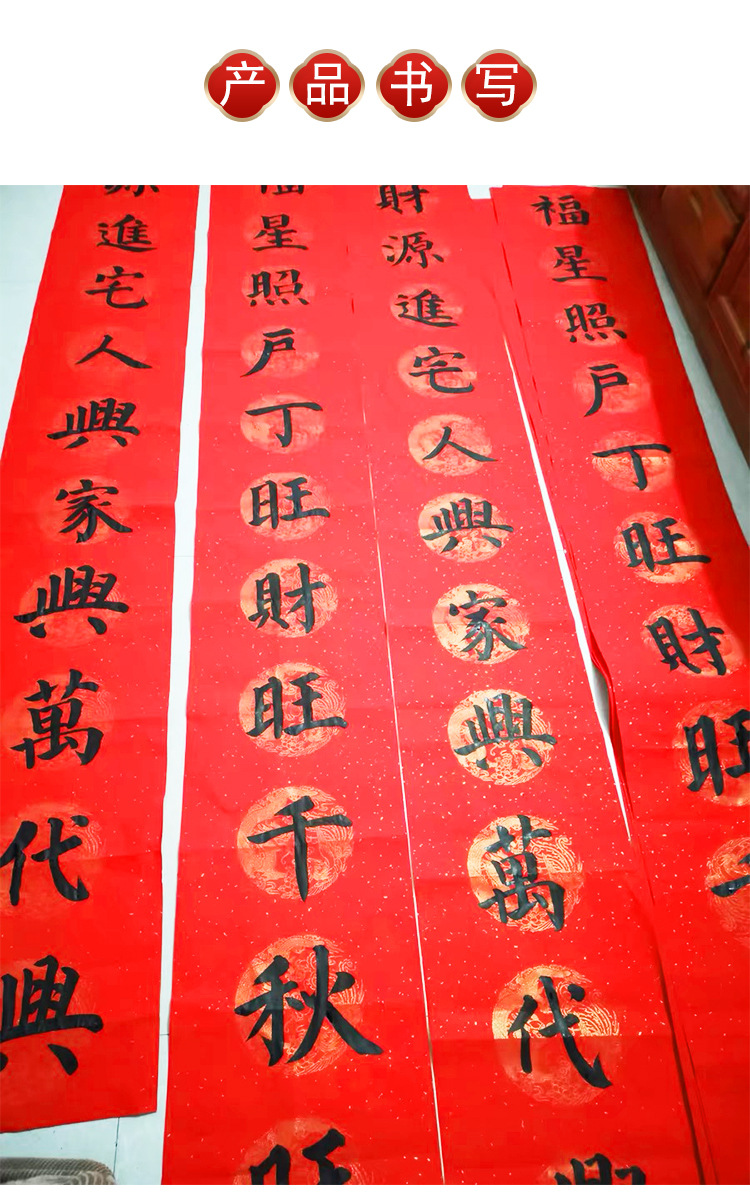 产品书写
福星照戶丁旺財旺
財源進宅人興家興萬代興
福星照戶丁旺財旺千秋旺
源進宅人興家興萬代興